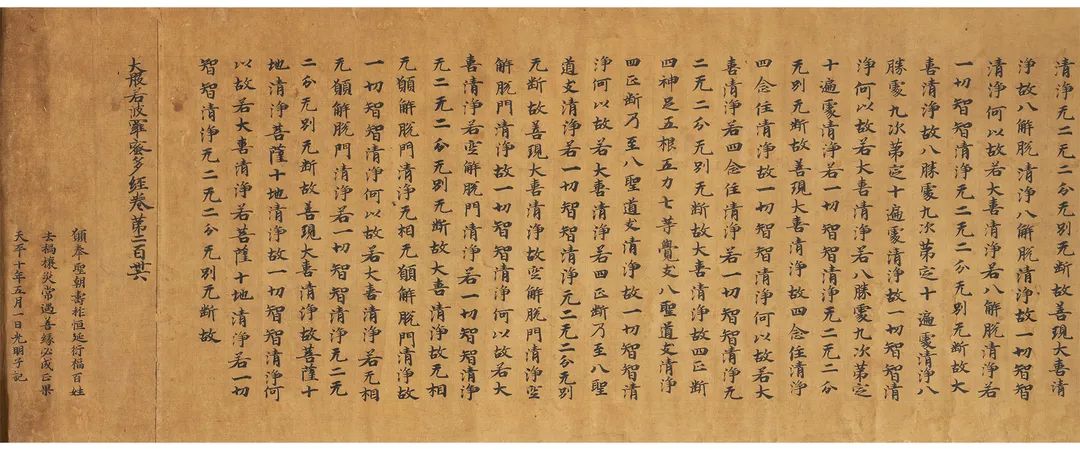 清淨无二无二分无別无斷故善現大喜清
淨故八解脫清淨八解脫清淨故一切智智
清淨何以故若大喜清淨若八解脫清淨若
一切智智清淨无二无二分无別无斷故大
喜清淨故八勝處九次第定十遍處清淨八
勝處九次第定十遍處清淨故一切智智清
淨何以故若大喜清淨若八勝處九次第定
十遍處清淨若一切智智清淨无二无二分
无別无斷故善現大喜清淨故四念住清淨
四念住清淨故一切智智清淨何以故若大
喜清淨若四念住清淨若一切智智清淨无
二无二分无別无斷故大喜清淨故四正斷
四神足五根五力七等覺支八聖道支清淨
四正斷乃至八聖道支清淨故一切智智清
淨何以故若大喜清淨若四正斷乃至八聖
道支清淨若一切智智清淨无二无二分无別
无斷故善現大喜清淨故空解脫門清淨空
解脫門清淨故一切智智清淨何以故若大
喜清淨若空解脫門清淨若一切智智清淨
无二无二分无別无斷故大喜清淨故无相
无願解脫門清淨无相无願解脫門清淨故
一切智智清淨何以故若大喜清淨若无相
无願解脫門清淨若一切智智清淨无二无
二分无別无斷故善現大喜清淨故菩薩十
地清淨菩薩十地清淨故一切智智清淨何
以故若大喜清淨若菩薩十地清淨若一切
智智清淨无二无二分无別无斷故
大般若波羅蜜多經卷第二百卅六
願奉聖朝壽祚恒延衍福百姓
去禍攘災常遇善緣必成正果
天平十年五月一日光明子記